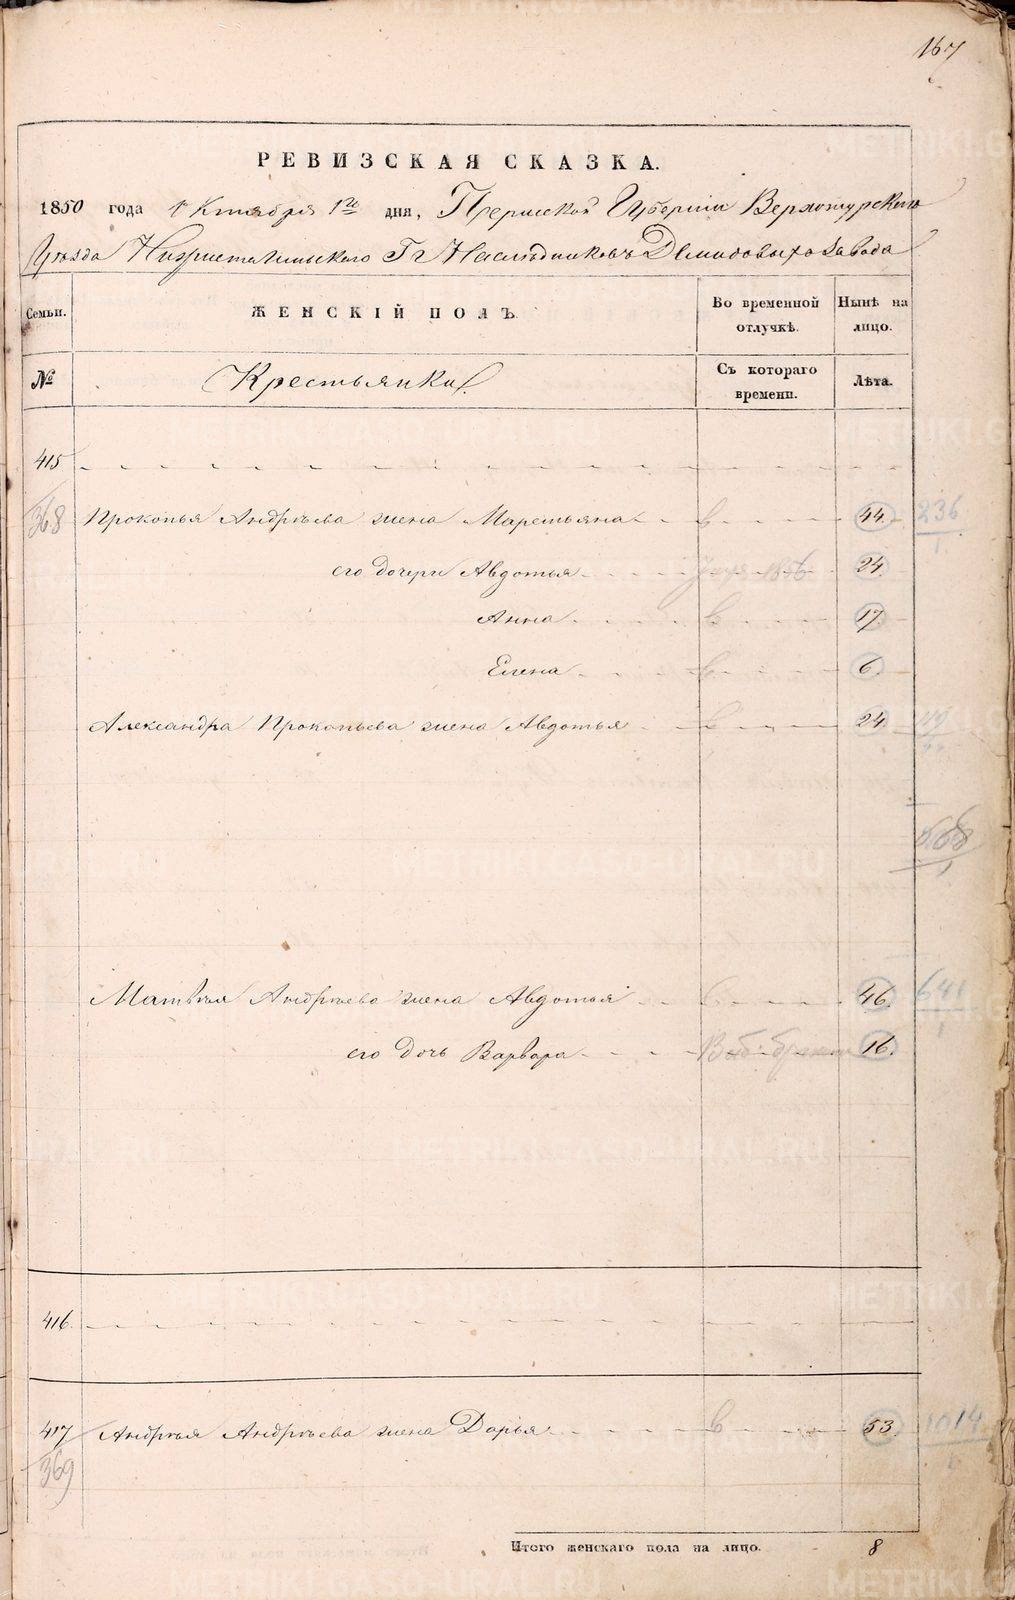 167
РЕВИЗСКАЯ СКАЗКА.
1850 года Октября 1го дня, Пермской Губернии Верхотурскаго
Уѣзда Нижнетагильскаго Гг Наслѣдниковъ Демидовыхъ Завода
Семьи. ЖЕНСКІЙ ПОЛЪ Во временной отлучкѣ. Нынѣ на лицо.
№ Крестьянки. Съ котораго времени. Лѣта.
415
368 Прокопья Андрѣева жена Маремьяна в 44. 236
его дочери Авдотья 1856 24.
Анна в 17.
Елена в 6.
Александра Прокопьева жена Авдотья в 24.
568
Матвѣя Андрѣева жена Авдотья 46. 641
его дочь Варвара 16.
416.
417 Андрѣя Андрѣева жена Дарья в 53. 1014
369
Итого женскаго пола на лицо. 8
METRIKI.GASO-URAL.RU